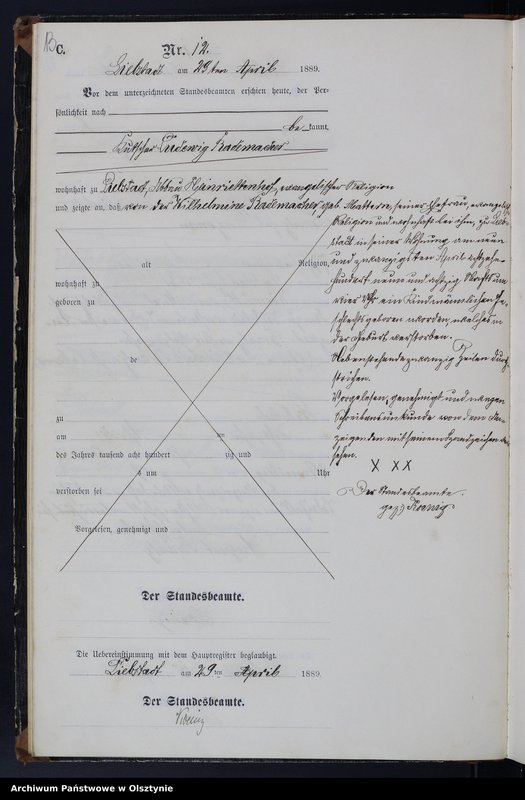 13
C.
Nr. 12.
Liebstadt am 29ten April 1889.
Vor dem unterzeichneten Standesbeamten erschien heute, der Per-
sönlichkeit nach
be kannt,
Kutscher Ludewig Rademacher
wohnhaft zu Liebstadt, Abbau Henriettenhof, evangelischer Religion
und zeigte an, daß von der Wilhelmine Rademacher geb. Mattern, seiner Ehefrau, evangelisch
Religion und wohnhaft bei ihm, zu Lieb-
stadt in seiner Wohnung am neun
und zwanzigsten April achtzehn-
hundert neun und achtzig Nachts um
vier Uhr ein Kind männlichen Ge-
schlechts geboren worden, welches in
der Geburt verstorben.
Nebenstehende zwanzig Zeilen durch-
strichen.
Vorgelesen, genehmigt und wegen
Schreibensunkunde von dem An-
zeigenden mit seinem Handzeichen ver-
sehen.
X XX
Der Standesbeamte.
gez. Koenig.
alt Religion,
wohnhaft zu
geboren zu
de
zu
am ten
des Jahres tausend acht hundert zig und
um Uhr
verstorben sei
Vorgelesen, genehmigt und
Der Standesbeamte.
Die Uebereinstimmung mit dem Hauptregister beglaubigt.
Liebstadt am 29ten April 1889.
Der Standesbeamte.
Koenig
Archiwum Państwowe w Olsztynie